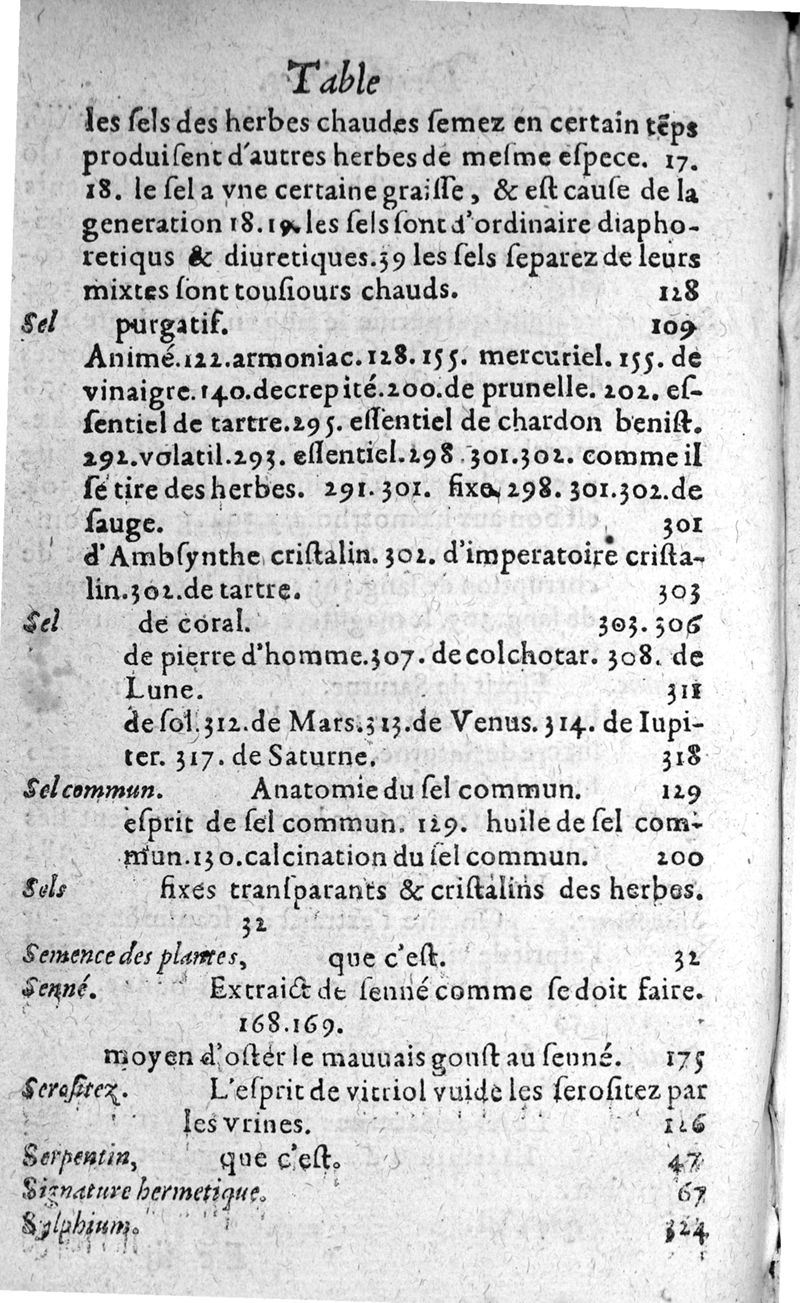 Table
les ſels des herbes chaudes ſemez en certain tẽps
produiſent d'autres herbes de meſme eſpece. 17.
18. le ſel a vne certaine graiſſe, & eſt cauſe de la
generation 18.19. les ſels ſont d'ordinaire diapho-
retiqus & diuretiques.39 les ſels ſeparez de leurs
mixtes ſont touſiours chauds. 128
Sel purgatif. 109
Animé.122.armoniac.128.155. mercuriel.155. de
vinaigre.140.decrepité.200.de prunelle. 202. eſ-
ſentiel de tartre.295. eſſentiel de chardon beniſt.
292.volatil.293. eſſentiel.298.301.302. comme il
ſe tire des herbes. 291.301. fixe, 298. 301.302.de
ſauge. 301
d'Ambſynthe criſtalin. 302. d'imperatoire criſta-
lin.302.de tartre. 303
Sel de coral. 303. 306
de pierre d'homme.307. de colchotar. 308. de
Lune. 311
de ſol.312.de Mars.313.de Venus.314. de Iupi-
ter. 317. de Saturne. 318
Sel commun. Anatomie du ſel commun. 129
eſprit de ſel commun. 129. huile de ſel com-
mun.130.calcination du ſel commun. 200
Sels fixes tranſparants & criſtalins des herbes.
32
Semence des plantes, que c'eſt. 32
Senné. Extraict de ſenné comme ſe doit faire.
168.169.
moyen d'oſter le mauuais gouſt au ſenné. 175
Seroſitez. L'eſprit de vitriol vuide les ſeroſitez par
les vrines. 126
Serpentin, que c'eſt. 47
Signature hermetique. 67
Sylphium. 324